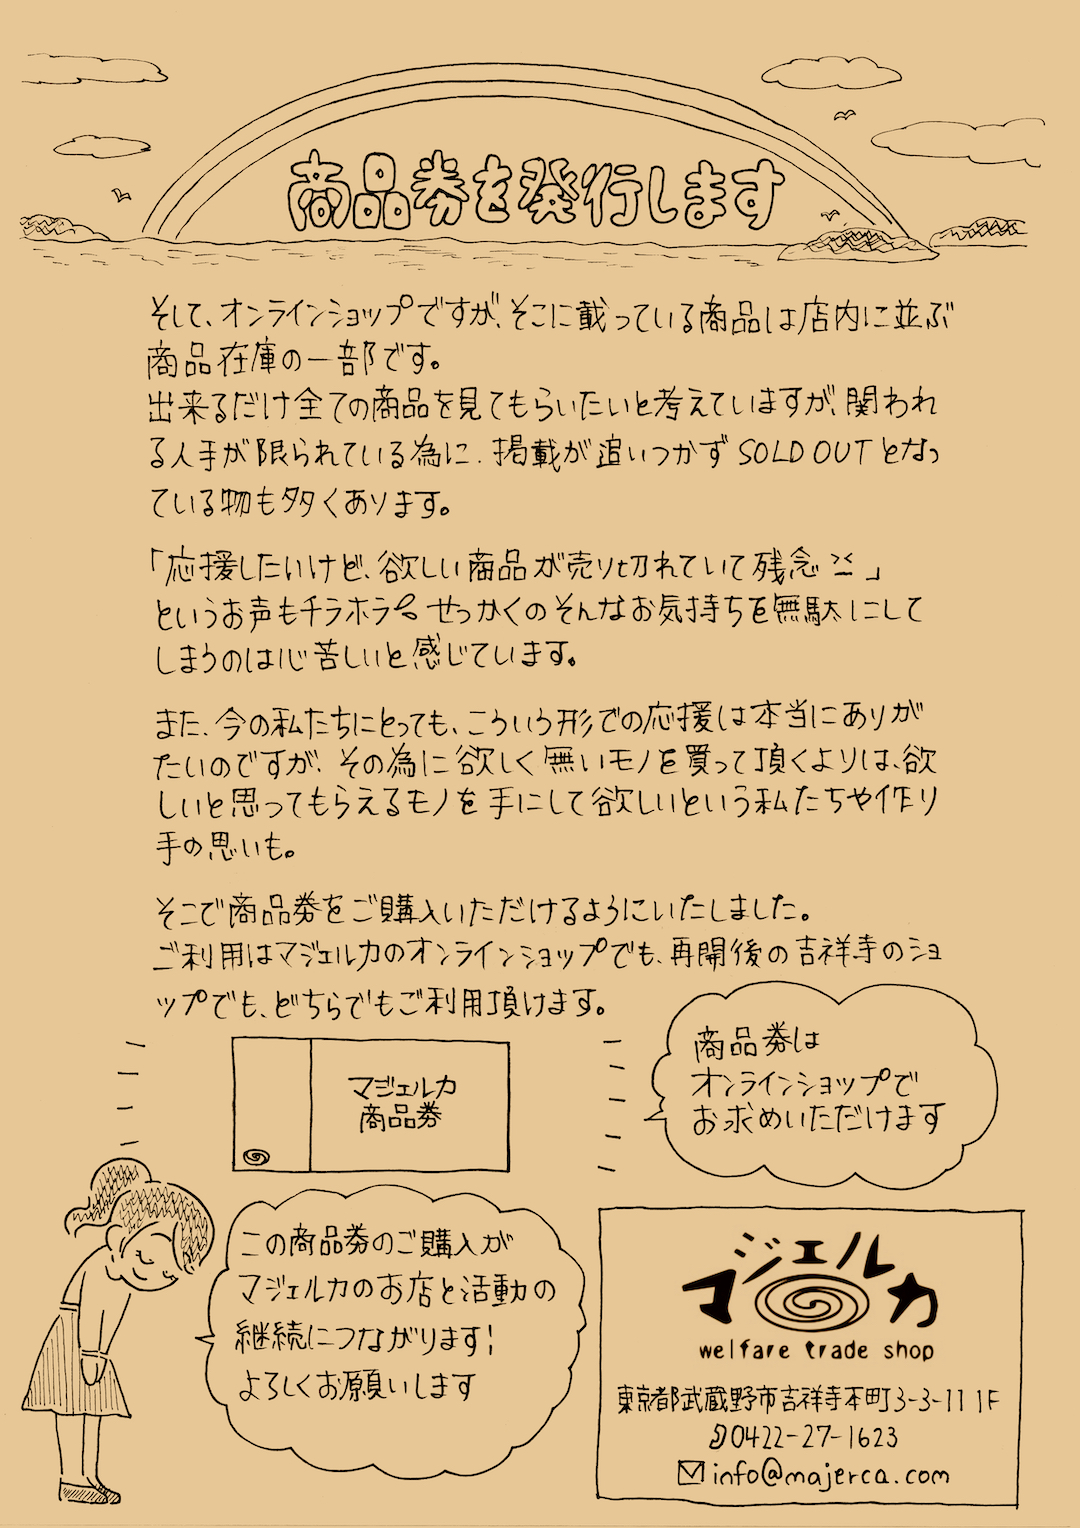 商品券を発行します
そして、オンラインショップですが、そこに載っている商品は店内に並ぶ
商品在庫の一部です。
出来るだけ全ての商品を見てもらいたいと考えていますが、関われ
る人手が限られている為に、掲載が追いつかずSOLD OUTとなっ
ている物も多くあります。
「応援したいけど、欲しい商品が売り切れていて残念」
というお声もチラホラ。せっかくのそんなお気持ちを無駄にして
しまうのは心苦しいと感じています。
また、今の私たちにとっても、こういう形での応援は本当にありが
たいのですが、その為に欲しく無いモノを買って頂くよりは、欲
しいと思ってもらえるモノを手にして欲しいという私たちや作り
手の思いも。
そこで商品券をご購入いただけるようにいたしました。
ご利用はマジェルカのオンラインショップでも、再開後の吉祥寺のショ
ップでも、どちらでもご利用頂けます。
マジェルカ
商品券
商品券は
オンラインショップで
お求めいただけます
この商品券のご購入が
マジェルカのお店と活動の
継続につながります!
よろしくお願いします
マジェルカ
welfare trade shop
東京都武蔵野市吉祥寺本町3-3-11 1F
0422-27-1623
info@majerca.com